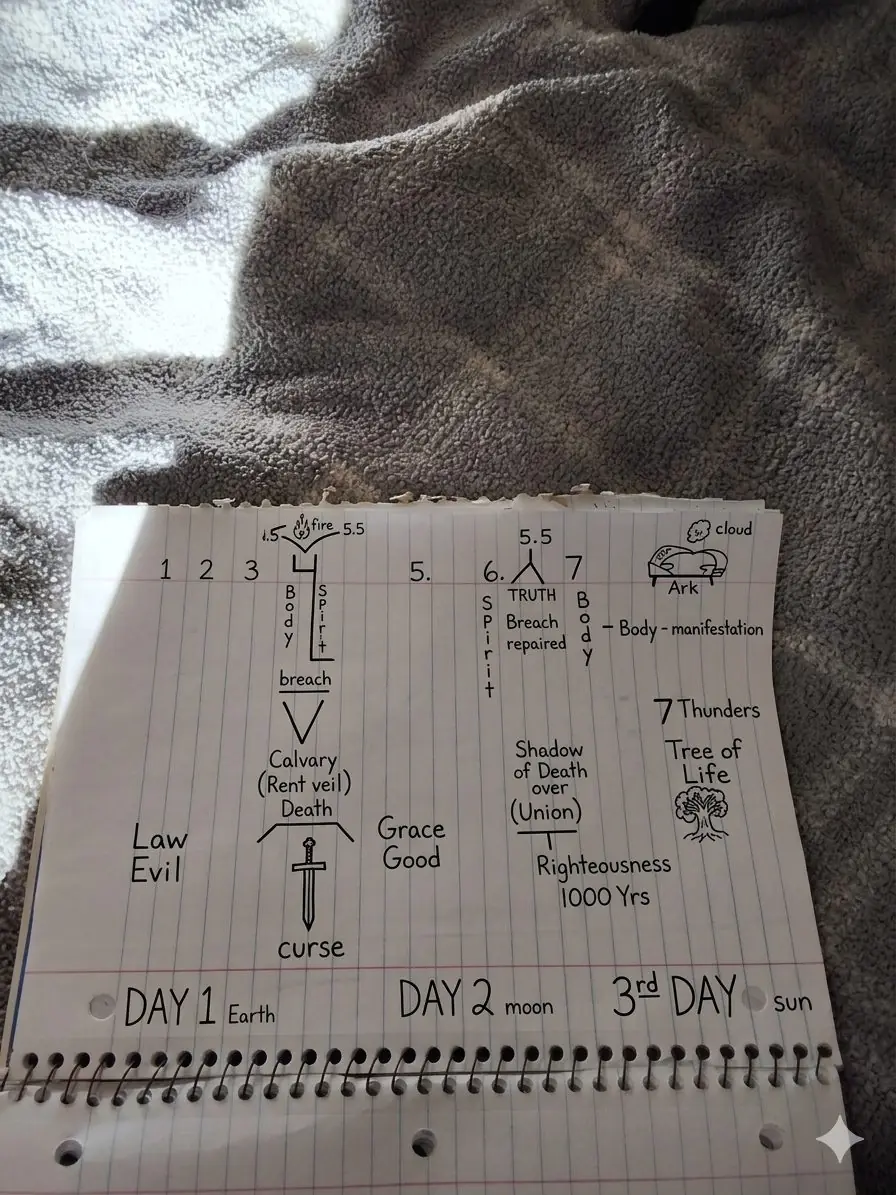 1.5 fire 5.5
5.5
cloud
1 2 3 4 5. 6. 7
Ark
Body
Spirit
Spirit
TRUTH
Breach
repaired
Body
– Body – manifestation
breach
7 Thunders
Calvary
(Rent veil)
Death
Shadow
of Death
over
(Union)
Tree of
Life
Law
Evil
Grace
Good
Righteousness
1000 Yrs
curse
DAY 1 Earth
DAY 2 moon
3rd DAY sun